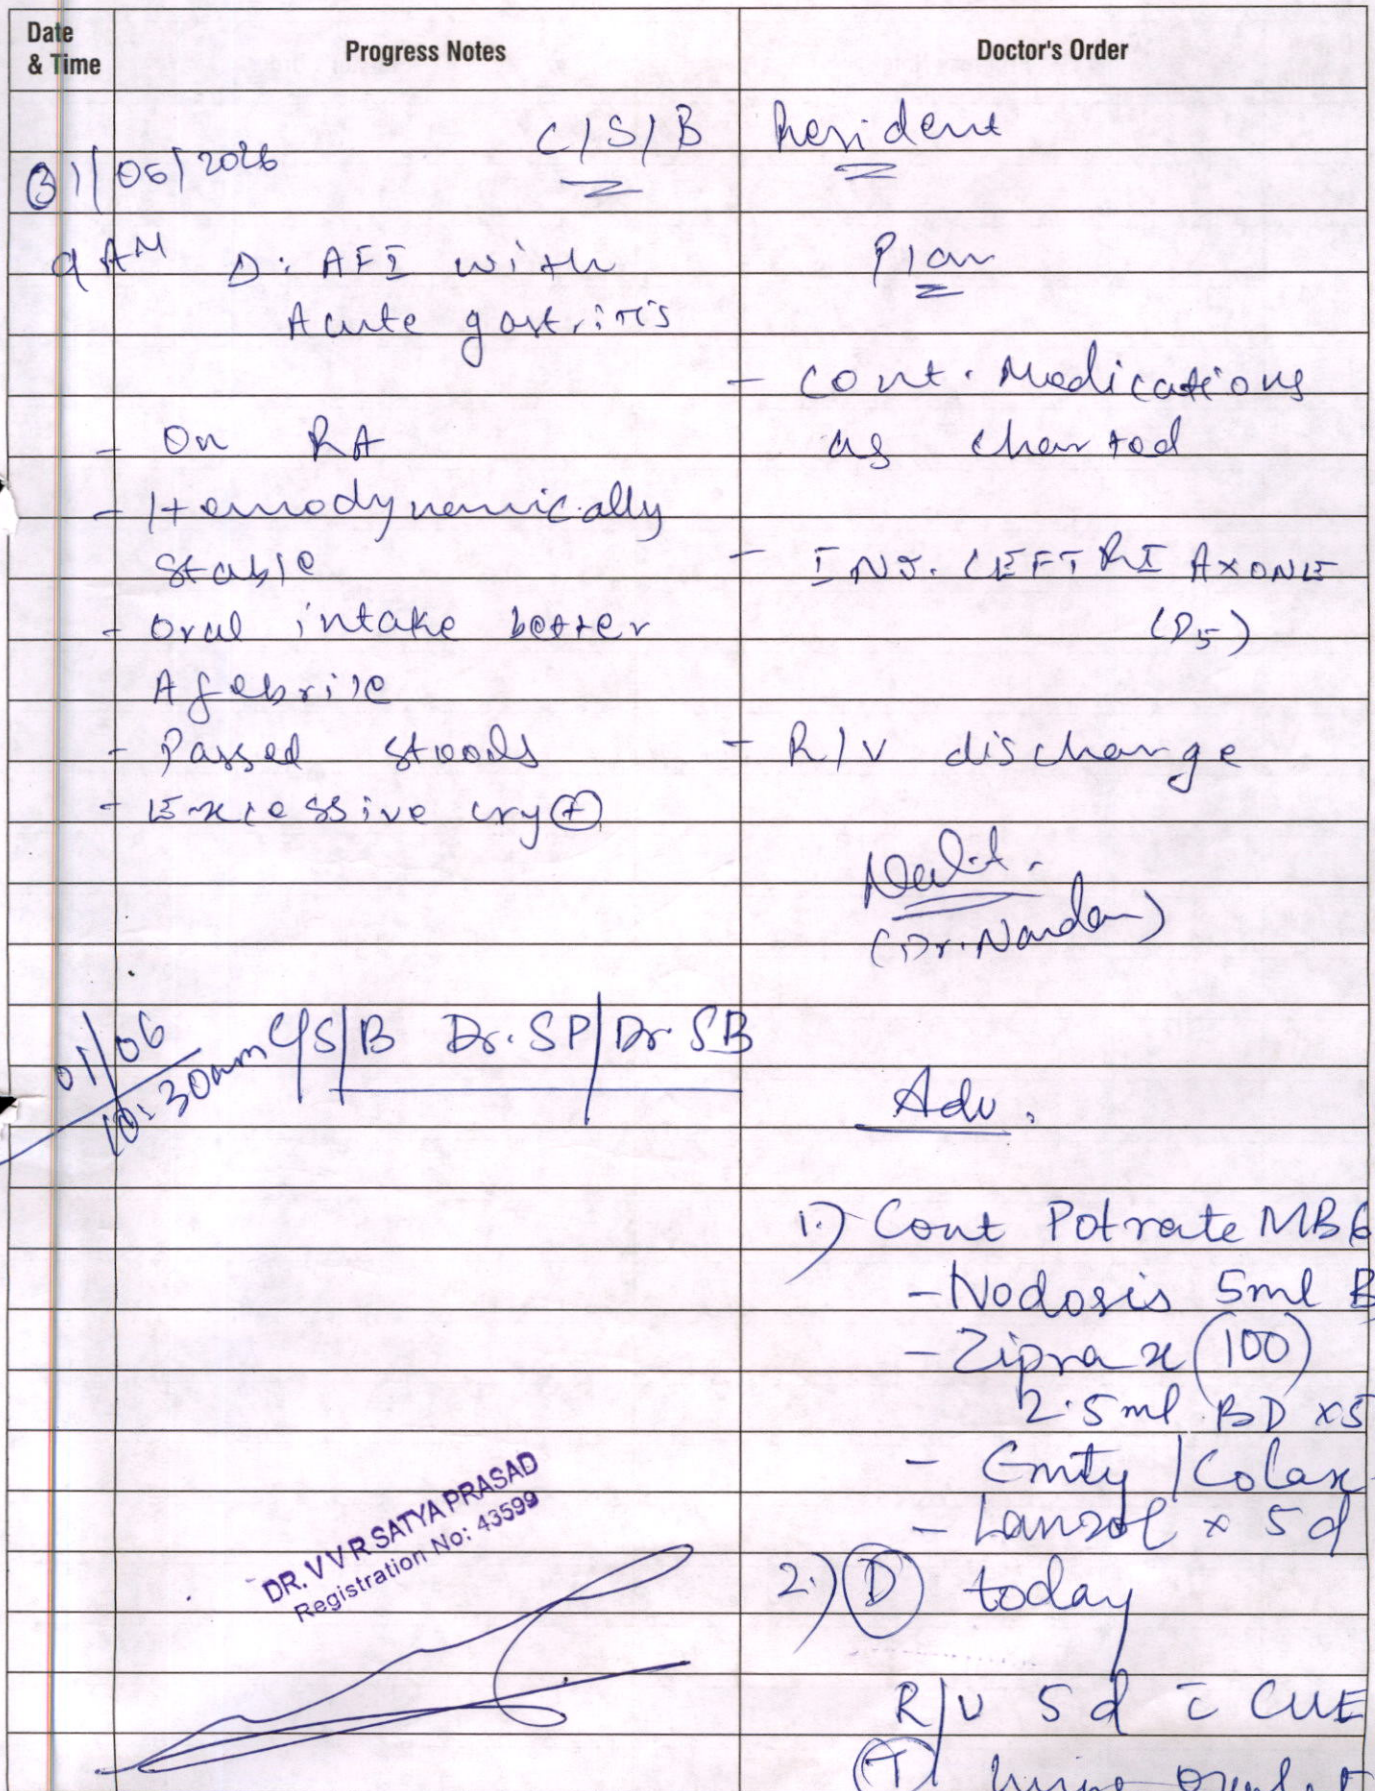 Date & Time
Progress Notes
Doctor's Order
C/S/B Resident
01/06/2026
9 AM
D: AFI with
Acute gastritis
- On RA
- Hemodynamically
stable
- Oral intake better
Afebrile
- Passed stools
- Excessive cry (+)
Plan
- cont. Medications
as charted
- INJ. CEFTRIAXONE
(D5)
- R/V discharge
(Dr. Nandan)
01/06
10:30am
C/S/B Dr. SP/Dr SB
Adv.
1.) Cont Potrate MB6
- Nodosis 5ml B
- Ziprax (100)
2.5ml BD x5
- Emty / Colax
- Lanzol x 5d
2.) (D) today
R/V 5d c̄ CUE
DR. V V R SATYA PRASAD
Registration No: 43599